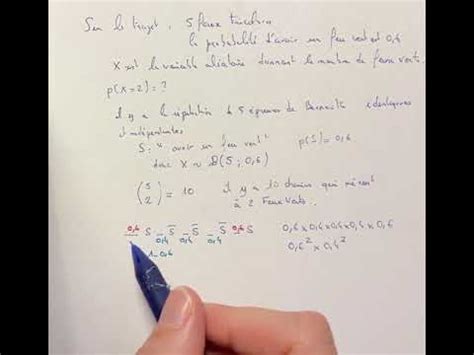 Sur le trajet, 5 feux tricolores
la probabilité d'avoir un feu vert est 0,6
X est la variable aléatoire donnant le nombre de feux verts.
p(X=2) = ?
il y a la répétition de 5 épreuves de Bernoulli identiques
et indépendantes
S : "avoir un feu vert" p(S) = 0,6
donc X ~ B(5 ; 0,6)
(5 2) = 10 il y a 10 chemins qui mènent
à 2 feux verts.
0,6 S 0,4 S̄ 0,4 S̄ 0,4 S̄ 0,6 S 0,6 x 0,4 x 0,4 x 0,4 x 0,6
1-0,6 0,6² x 0,4²